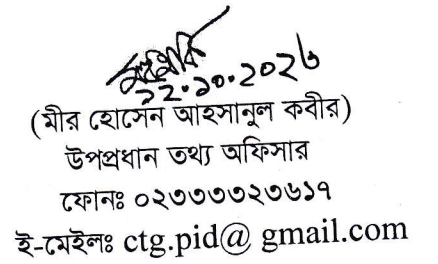 ২২.১০.২০২৩
(মীর হোসেন আহসানুল কবীর)
উপপ্রধান তথ্য অফিসার
ফোনঃ ০২৩৩৩৩২৩৬১৭
ই-মেইলঃ ctg.pid@ gmail.com